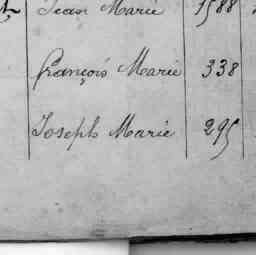 Jean Marie 1588
François Marie 338
Joseph Marie 295